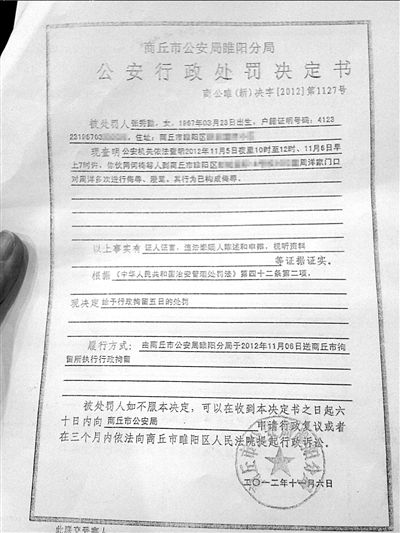 商丘市公安局睢阳分局
公安行政处罚决定书
商公睢（新）决字[2012]第1127号
被处罚人张秀勤，女，1967年03月23日出生，户籍证明号码：4123
23196703，住址：商丘市睢阳区
现查明公安机关依法查明2012年11月5日夜里10时至12时、11月6日早
上7时许，你伙同他人到商丘市睢阳区周洋家门口
对周洋多次进行侮辱、谩骂，其行为已构成侮辱。
以上事实有证人证言，违法嫌疑人陈述和申辩，视听资料
等证据证实。
根据《中华人民共和国治安管理处罚法》第四十二条第二项，
现决定给予行政拘留五日的处罚
履行方式：由商丘市公安局睢阳分局于2012年11月06日送商丘市拘
留所执行行政拘留
被处罚人如不服本决定，可以在收到本决定书之日起六
十日内向商丘市公安局申请行政复议或者
在三个月内依法向商丘市睢阳区人民法院提起行政诉讼。
商丘市公安局睢阳分局
二〇一二年十一月六日